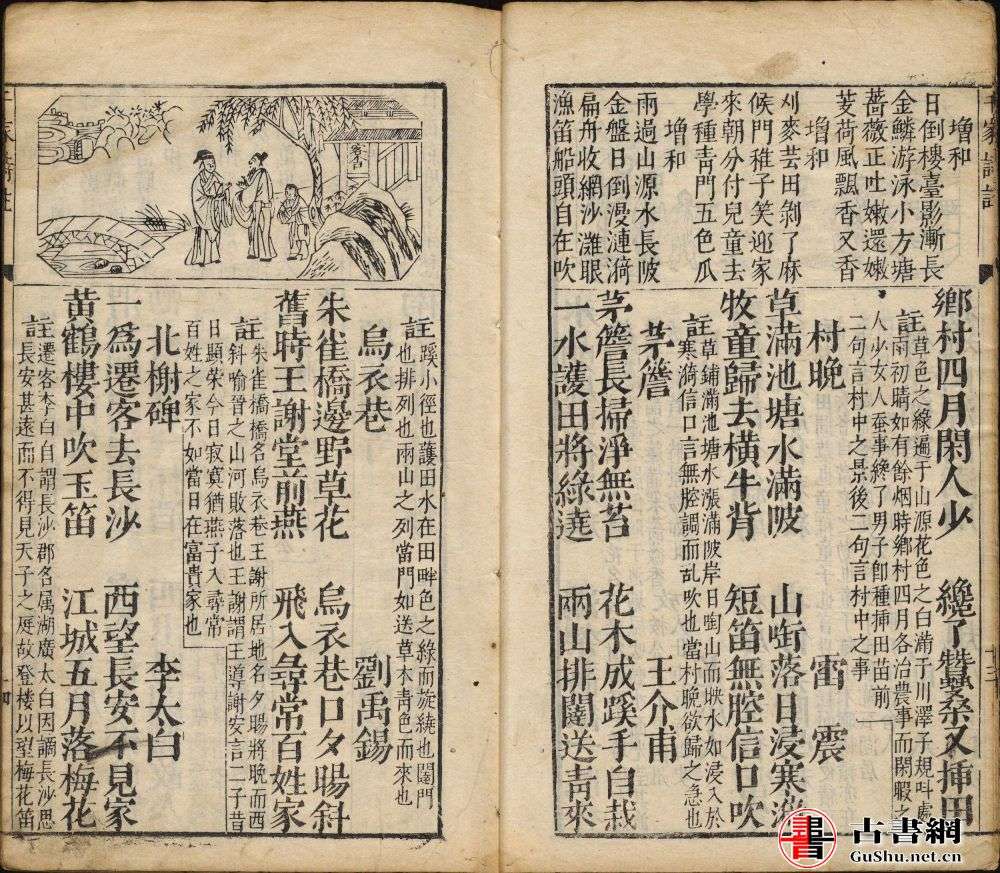 千家詩註
增和
日倒樓臺影漸長
金鱗游泳小方塘
薔薇正吐嫩還嫩
芰荷風飄香又香
增和
刈麥芸田剝了麻
候門稚子笑迎家
來朝分付兒童去
學種靑門五色瓜
增和
雨過山源水長陂
金盤日倒漫漣漪
扁舟收網沙灘眼
漁笛船頭自在吹
鄉村四月閑人少
纔了蠶桑又揷田
註草色之綠遍于山源花色之白滿于川澤子規叫處
雨初晴如有餘烟時鄉村四月各治農事而閑暇之
人少女人蚕事終了男子卽種揷田苗前
二句言村中之景後二句言村中之事
村晚
雷震
草滿池塘水滿陂
山啣落日浸寒漪
牧童歸去橫牛背
短笛無腔信口吹
註草鋪滿池塘水漲滿陂岸日啣山而映水如浸入於
寒漪信口言無腔調而乱吹也當村晚欲歸之急也
茅簷
王介甫
茅簷長掃淨無苔
花木成蹊手自栽
一水護田將綠遶
兩山排闥送靑來
千家詩註
註蹊小徑也護田水在田畔色之綠而旋繞也闥門
也排列也兩山之列當門如送草木靑色而來也
烏衣巷
劉禹錫
朱雀橋邊野草花
烏衣巷口夕陽斜
舊時王謝堂前燕
飛入尋常百姓家
註朱雀橋橋名烏衣巷王謝所居地名夕陽將晚而西
斜喻晉之山河敗落也王謝謂王導謝安言二子昔
日顯榮今日寂寞猶燕子入尋常
百姓之家不如當日在富貴家也
北榭碑
李太白
一爲遷客去長沙
西望長安不見家
黃鶴樓中吹玉笛
江城五月落梅花
註遷客李白自謂長沙郡名属湖廣太白因謫長沙思
長安甚遠而不得見天子之庭故登楼以望梅花笛
書
古書網
GuShu.net.cn